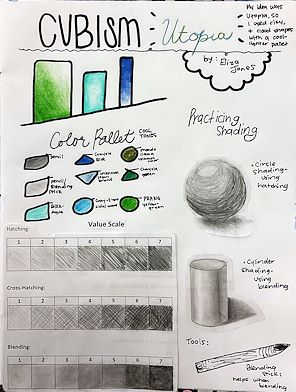 CUBISM: Utopia
My idea was
Utopia, so
I used city
+ cloud shapes
with a cool-
lighter pallet
by: Eliza
Jones
Color Pallet
COOL
TONES
Practicing
Shading
pencil
pencil/
blending
stick
Value Scale
Hatching:
1 2 3 4 5 6 7
Cross-Hatching:
1 2 3 4 5 6 7
Blending:
1 2 3 4 5 6 7
• Circle
shading-
using
hatching
• Cylinder
shading-
using
blending
Tools:
Blending
stick:
helps when
blending